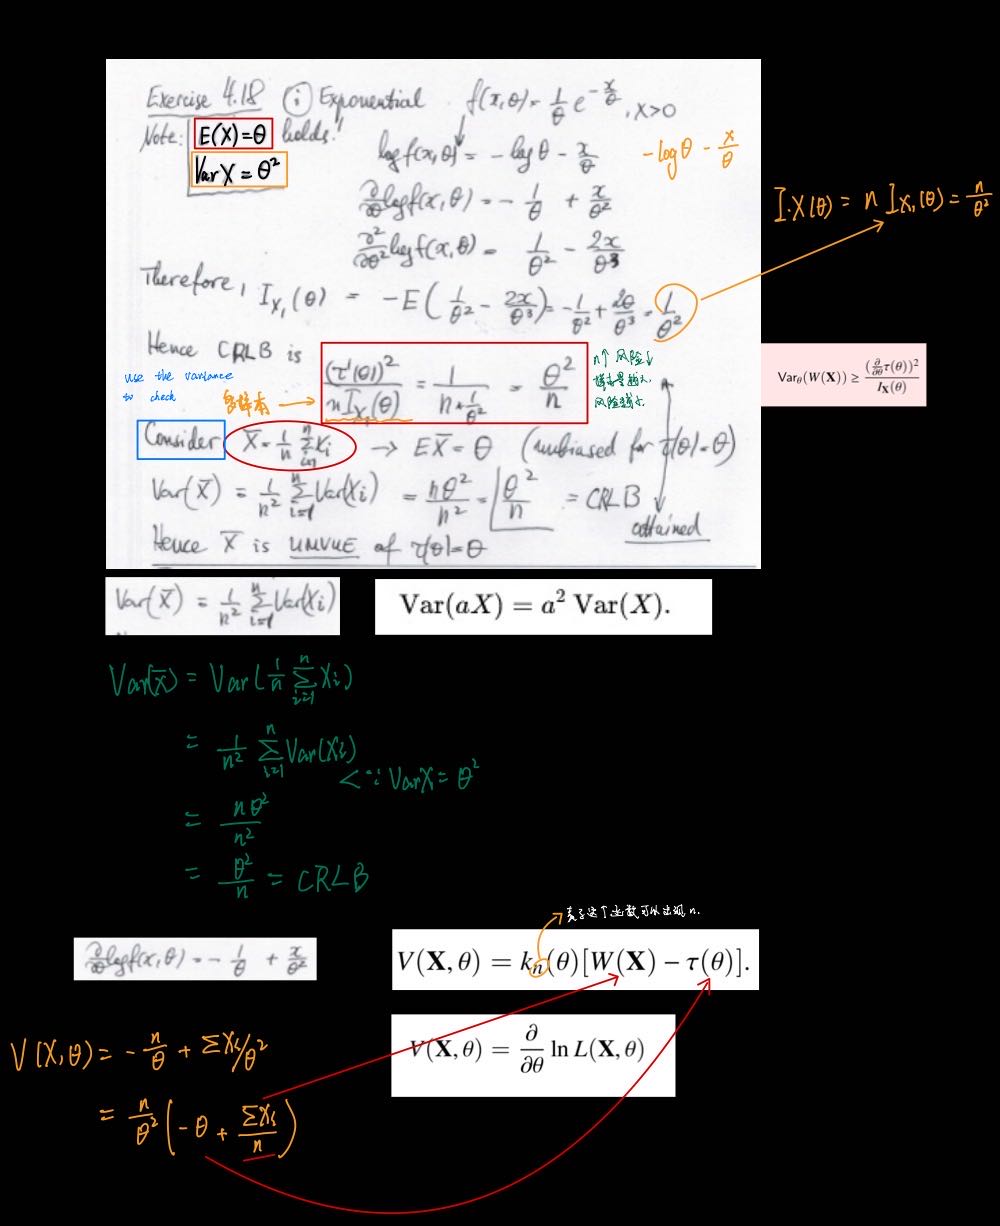 Exercise 4.18 (i) Exponential f(x,θ) = 1/θ e^(-x/θ), x>0
Note: E(X)=θ holds!
Var X = θ²
log f(x,θ) = - log θ - x/θ
- log θ - x/θ
∂/∂θ log f(x,θ) = - 1/θ + x/θ²
I_X(θ) = n I_X₁(θ) = n/θ²
∂²/∂θ² log f(x,θ) = 1/θ² - 2x/θ³
Therefore, I_X₁(θ) = -E(1/θ² - 2x/θ³) = -1/θ² + 2θ/θ³ = 1/θ²
Hence CRLB is (τ'(θ))²/(n I_X₁(θ)) = 1/(n * 1/θ²) = θ²/n
n↑ 风险↓
样本量越大,
风险越小.
Var_θ(W(X)) ≥ (∂/∂θ τ(θ))²/I_X(θ)
use the variance
to check
多样本
Consider X̄ = 1/n Σ_{i=1}^n X_i → E X̄ = θ (unbiased for τ(θ)=θ)
Var(X̄) = 1/n² Σ_{i=1}^n Var(X_i) = nθ²/n² = θ²/n = CRLB
attained
Hence X̄ is UMVUE of τ(θ)=θ
Var(X̄) = 1/n² Σ_{i=1}^n Var(X_i)
Var(aX) = a² Var(X).
Var(X̄) = Var(1/n Σ_{i=1}^n X_i)
= 1/n² Σ_{i=1}^n Var(X_i)
<∵ Var X = θ²
= nθ²/n²
= θ²/n = CRLB
表示这个函数可以出现 n.
∂/∂θ log f(x,θ) = - 1/θ + x/θ²
V(X, θ) = k_n(θ)[W(X) − τ(θ)].
V(X, θ) = ∂/∂θ ln L(X, θ)
V(X,θ) = - n/θ + ΣX_i/θ²
= n/θ² (-θ + ΣX_i/n)